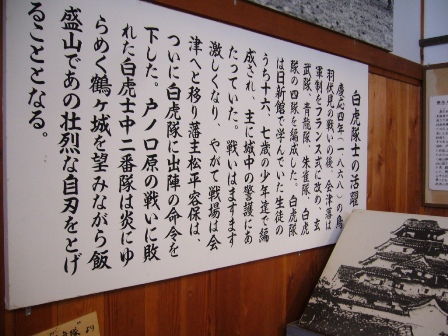 白虎隊士の活躍
慶応四年(一八六八)の鳥
羽伏見の戦いの後、会津藩は
軍制をフランス式に改め、玄
武隊、青龍隊、朱雀隊、白虎
隊の四隊を編成した。白虎隊
は日新館で学んでいた生徒の
うち十六、七歳の少年達で編
成され、主に城中の警護にあ
たっていた。戦いはますます
激しくなり、やがて戦場は会
津へと移り藩主松平容保は、
ついに白虎隊に出陣の命令を
下した。戸ノ口原の戦いに敗
れた白虎士中二番隊は炎にゆ
らめく鶴ヶ城を望みながら飯
盛山であの壮烈な自刃をとげ
ることとなる。